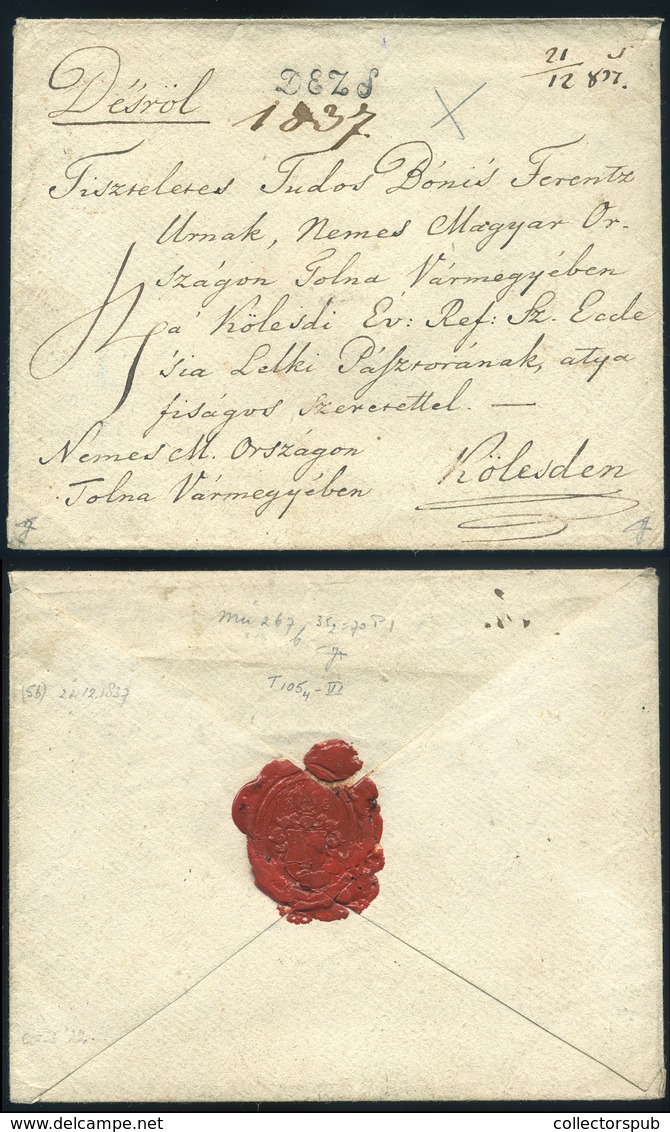 Désröl
DEZS
1837.
21/12 837.
Tiszteletes Tudos Bónis Ferentz
Urnak, Nemes Magyar Or-
szágon Tolna Vármegyében
á Kölesdi Ev: Ref: Sz. Eccle
sia Lelki Pásztorának, atya
fiságos szeretettel. —
Nemes M. Országon
Tolna Vármegyében
Kölesden
(56) 21.12.1837
T 105 4 - VI
www.delcampe.net
collectorspub